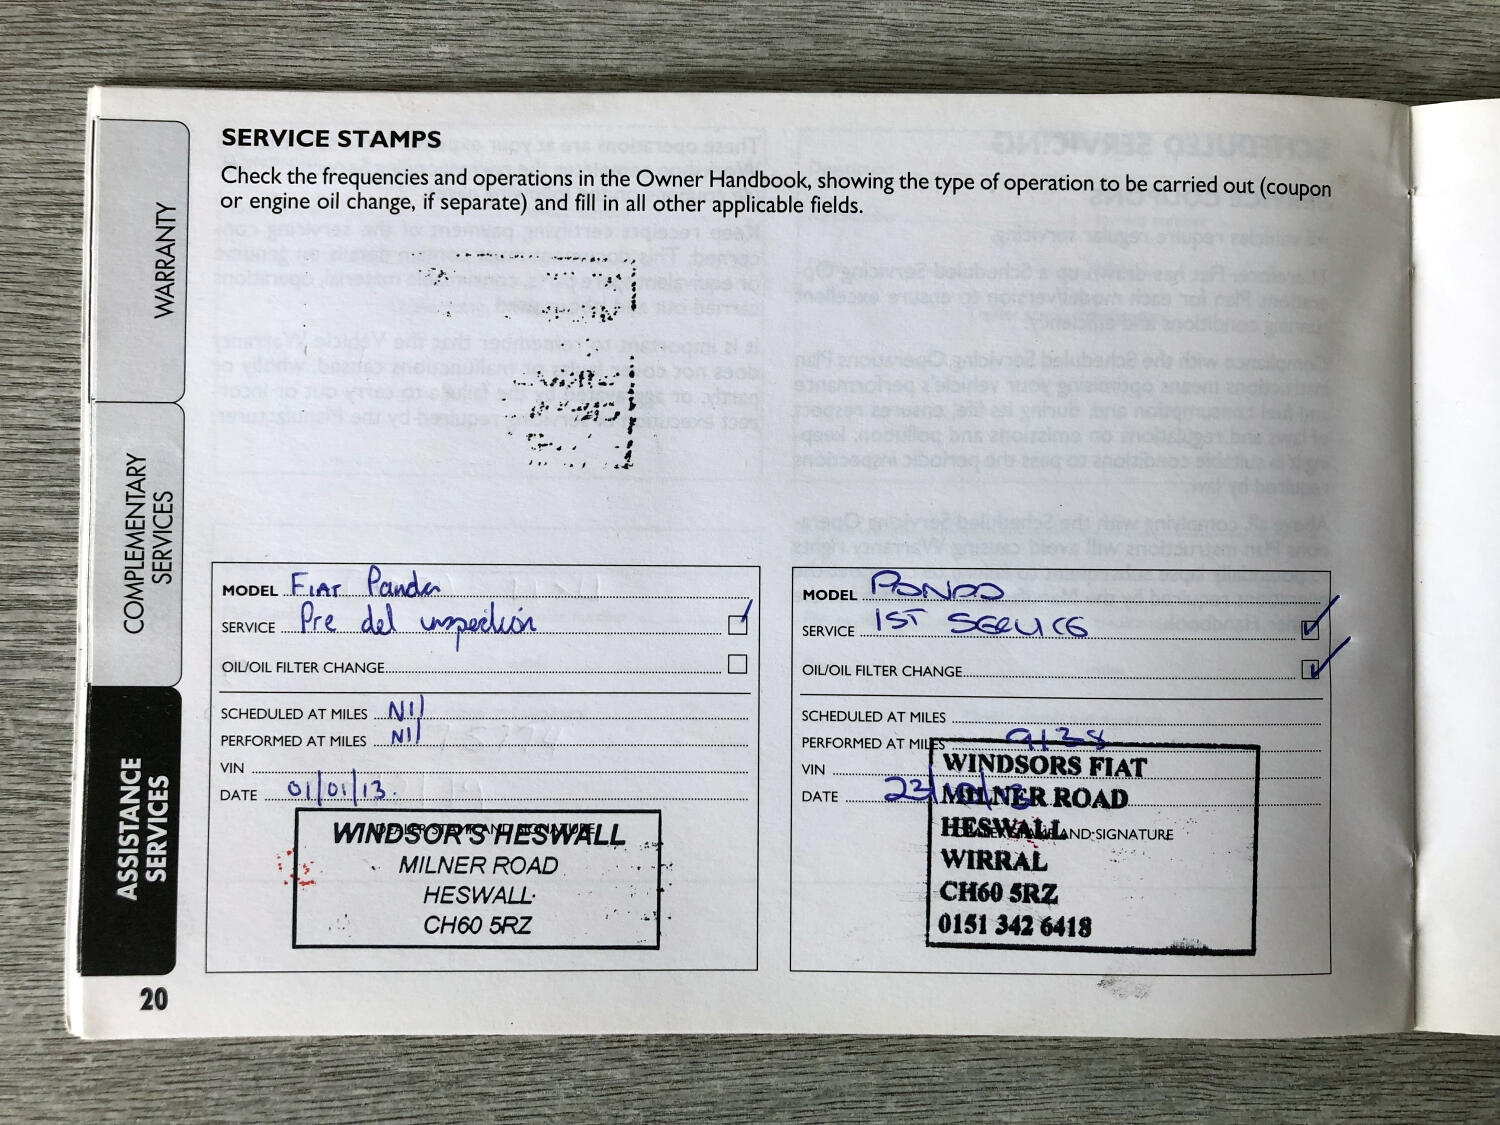 SERVICE STAMPS
Check the frequencies and operations in the Owner Handbook, showing the type of operation to be carried out (coupon
or engine oil change, if separate) and fill in all other applicable fields.
WARRANTY
COMPLEMENTARY
SERVICES
ASSISTANCE
SERVICES
MODEL FIAT Panda
SERVICE Pre del inspection
OIL/OIL FILTER CHANGE
SCHEDULED AT MILES Nil
PERFORMED AT MILES Nil
VIN
DATE 01/01/13.
DEALER STAMP AND SIGNATURE
WINDSOR'S HESWALL
MILNER ROAD
HESWALL
CH60 5RZ
MODEL PANDA
SERVICE 1ST SERVICE
OIL/OIL FILTER CHANGE
SCHEDULED AT MILES
PERFORMED AT MILES 9138
VIN
DATE 23/
DEALER STAMP AND SIGNATURE
WINDSORS FIAT
MILNER ROAD
HESWALL
WIRRAL
CH60 5RZ
0151 342 6418
20